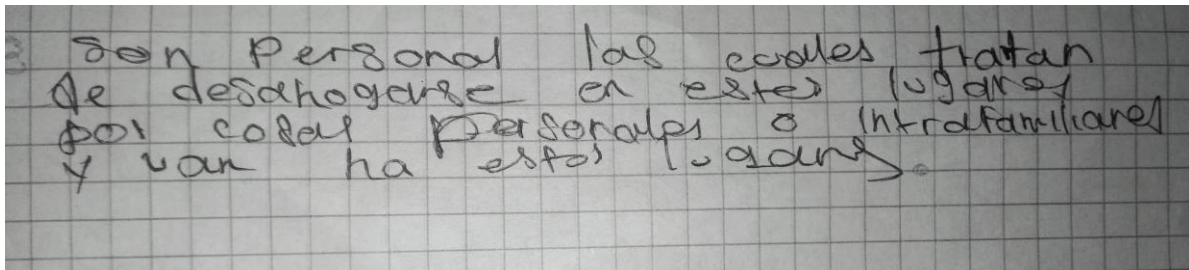 Son personal las cuales tratan
de desahogarse en estos lugares
por cosas personales o intrafamiliares
y van ha estos lugares.